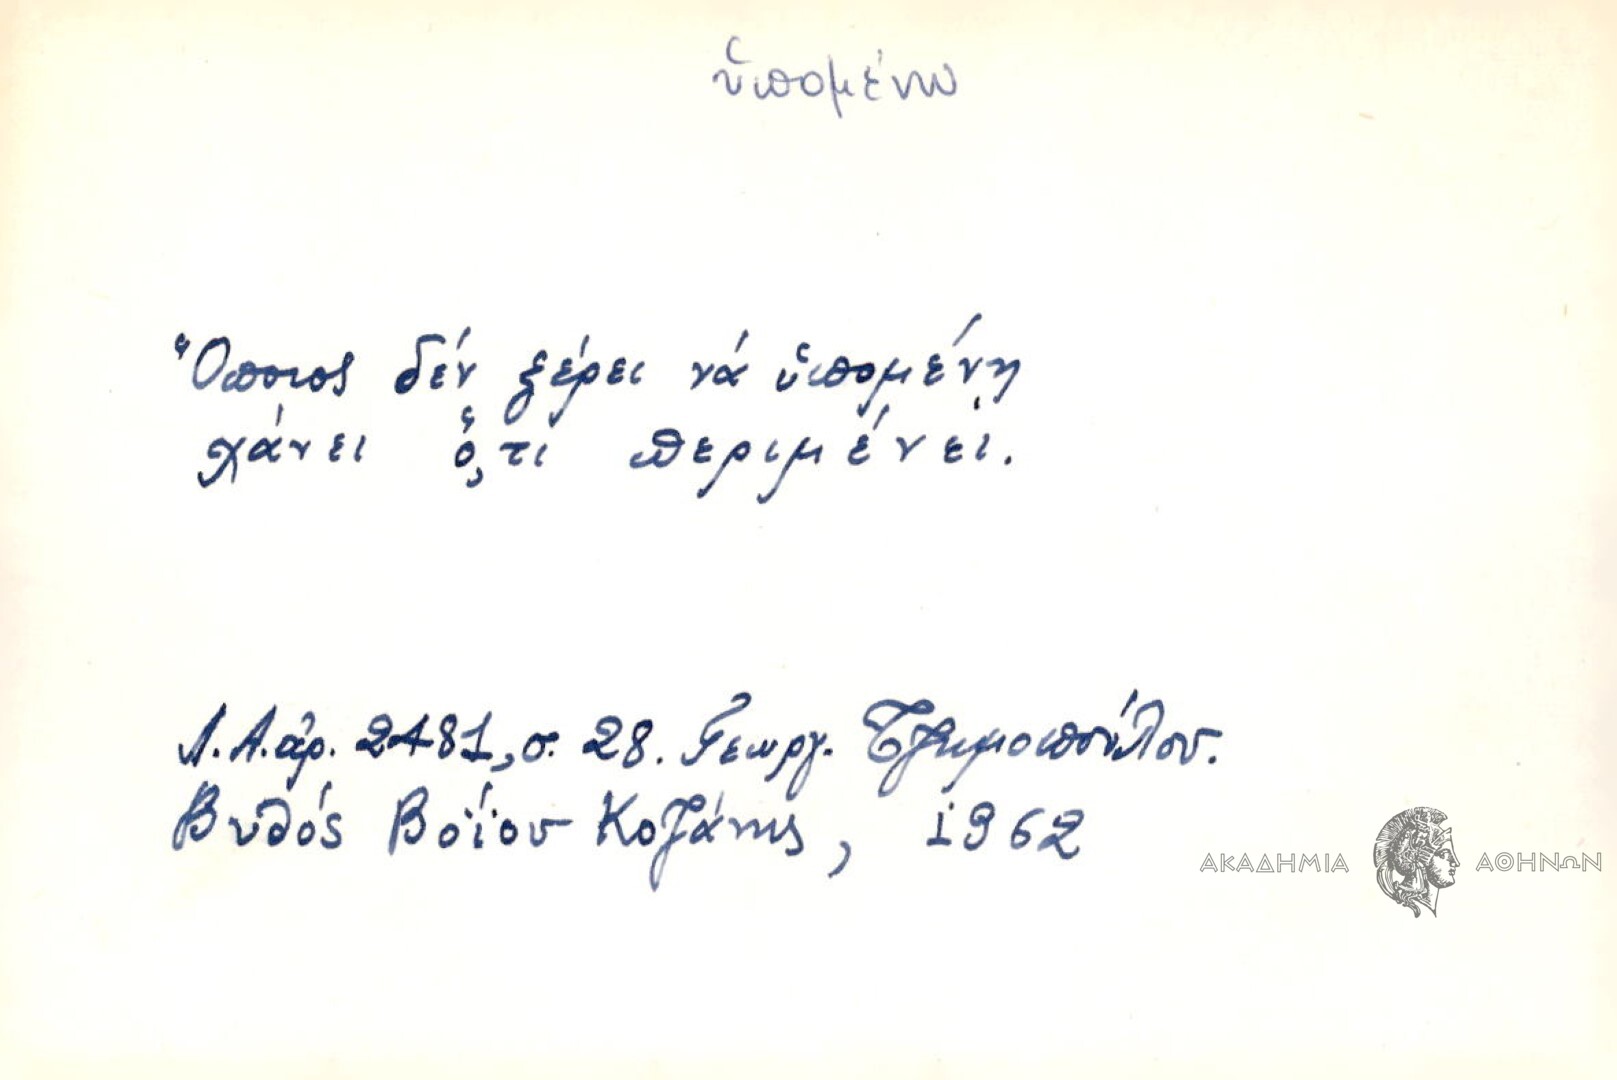 ὑπομένω
Ὅποιος δέν ξέρει νά ὑπομένῃ
χάνει ὅ,τι περιμένει.
Λ.Α. ἀρ. 2481, σ. 28. Γεωργ. Τζημοπούλου.
Βυθός Βοΐου Κοζάνης, 1962
ΑΚΑΔΗΜΙΑ ΑΘΗΝΩΝ